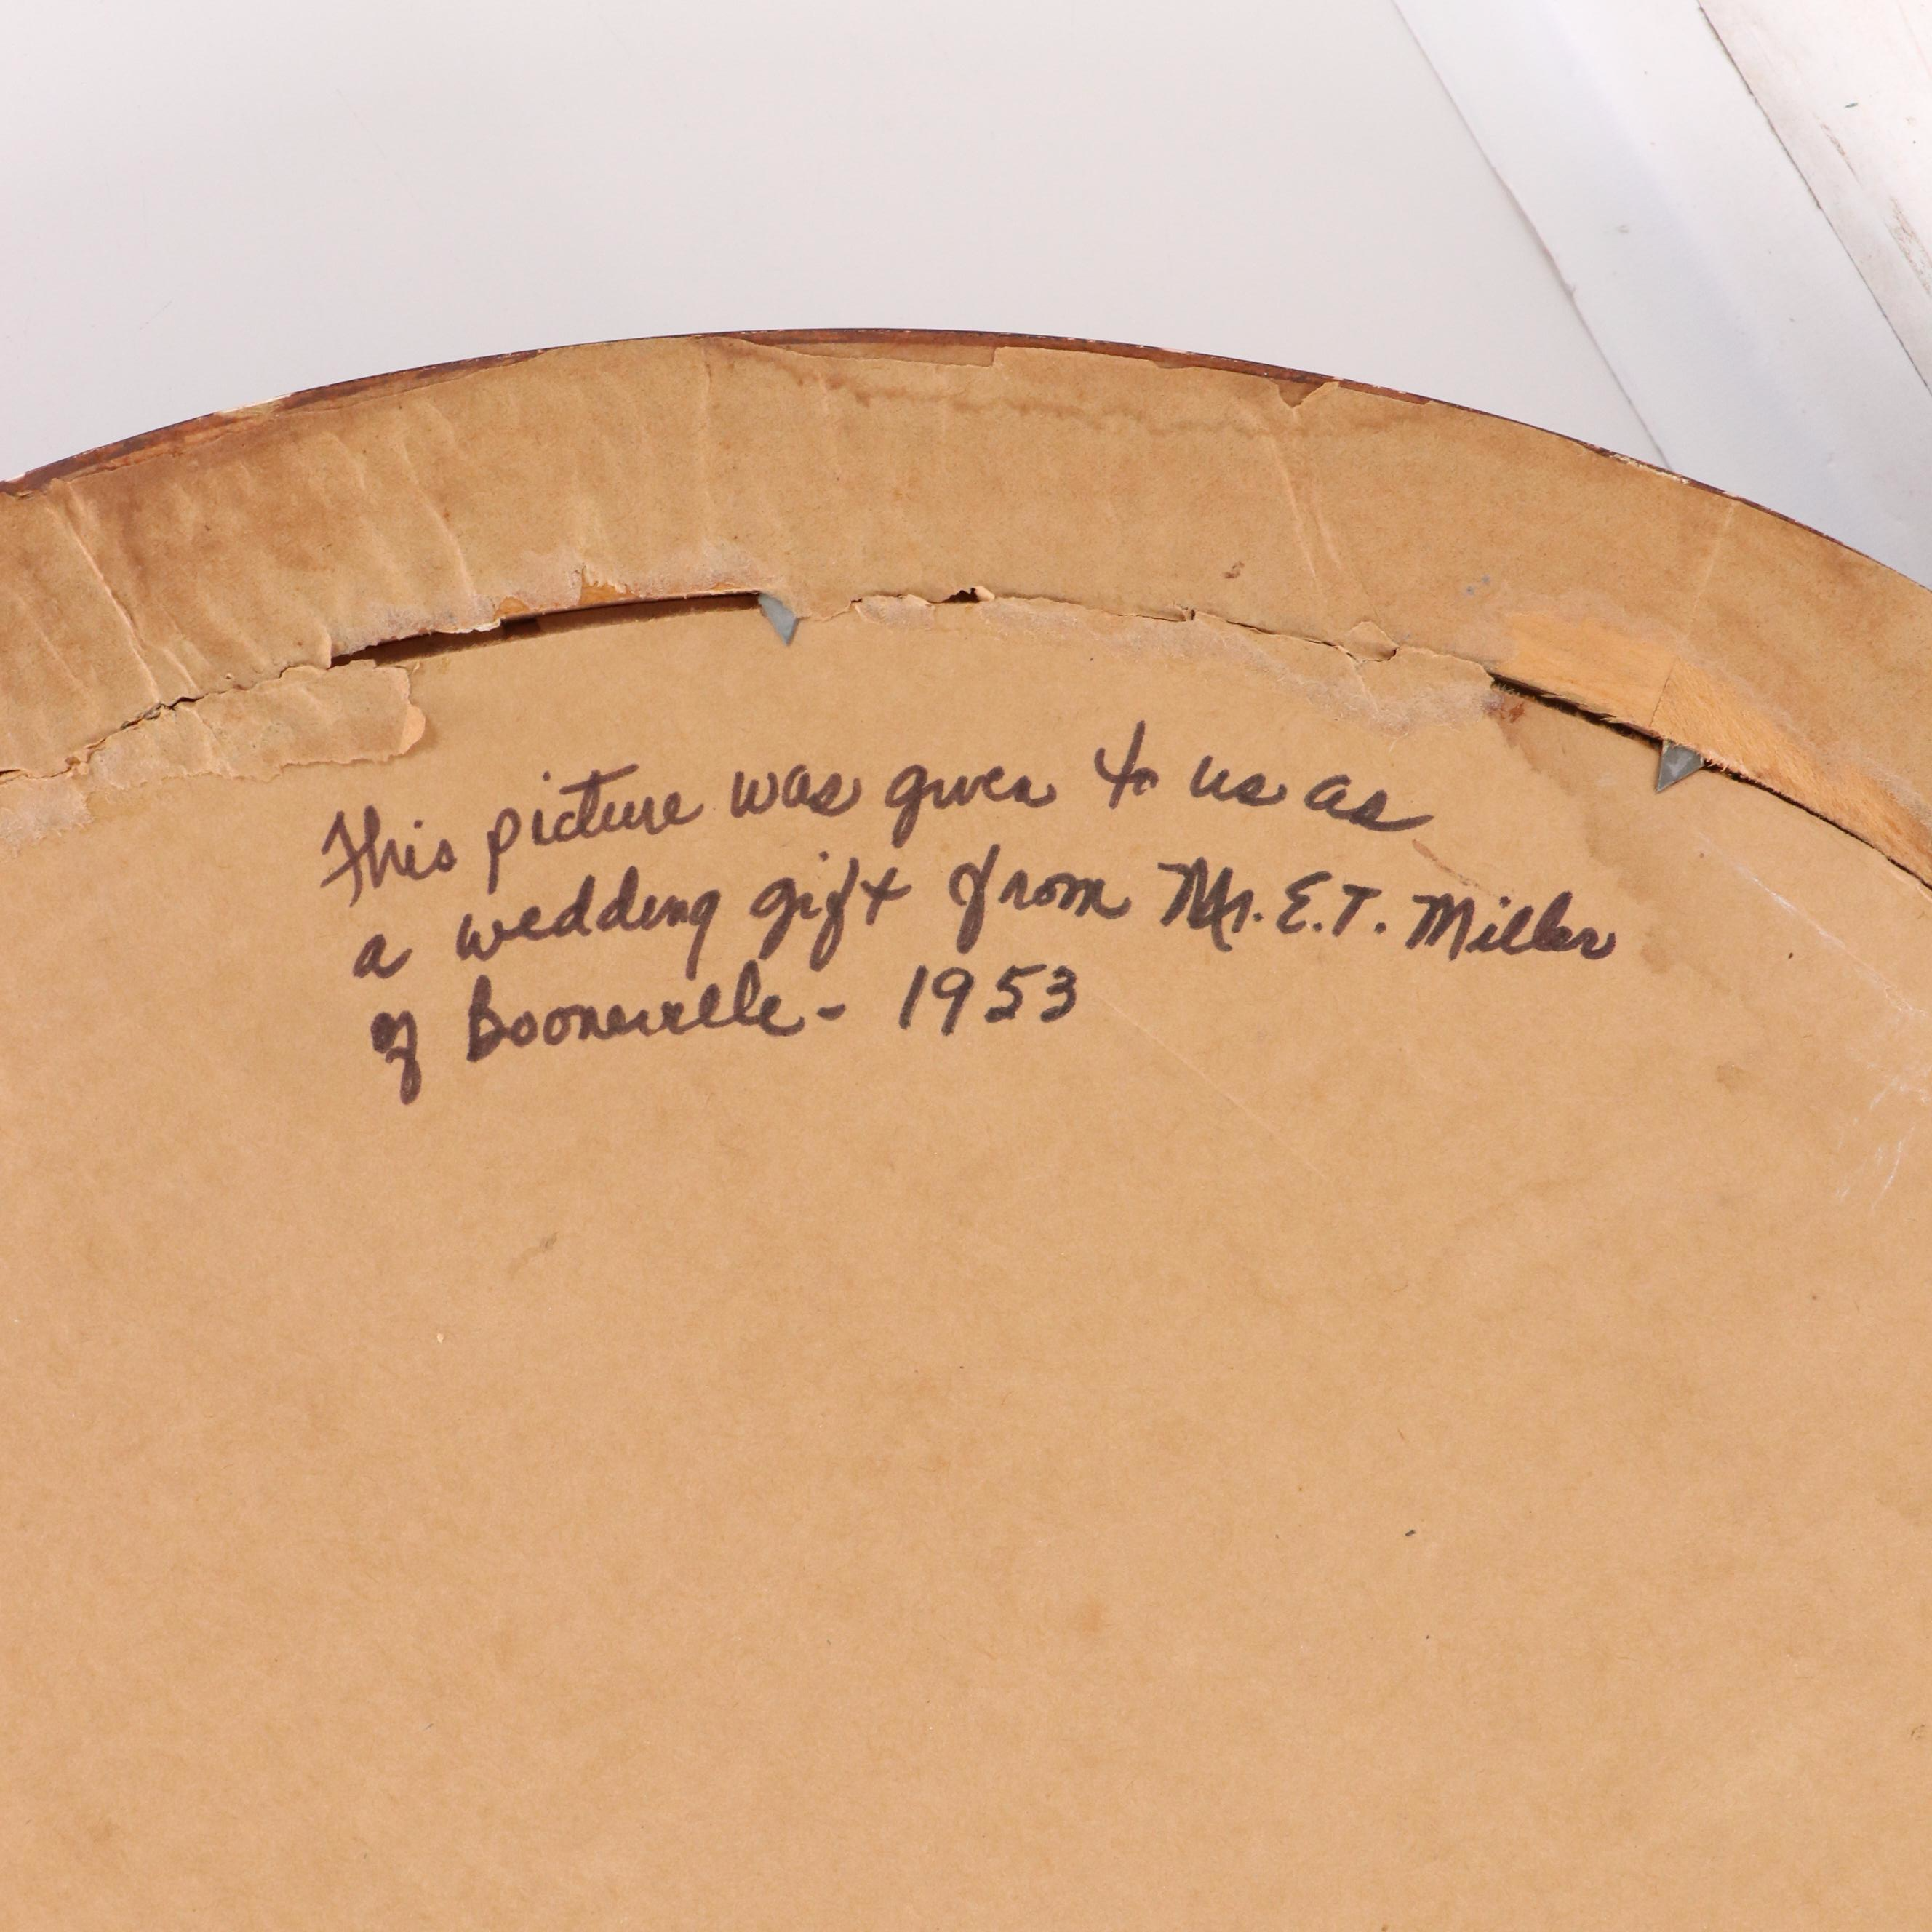 This picture was given to us as
a wedding gift from Mr. E.T. Miller
of Booneville - 1953